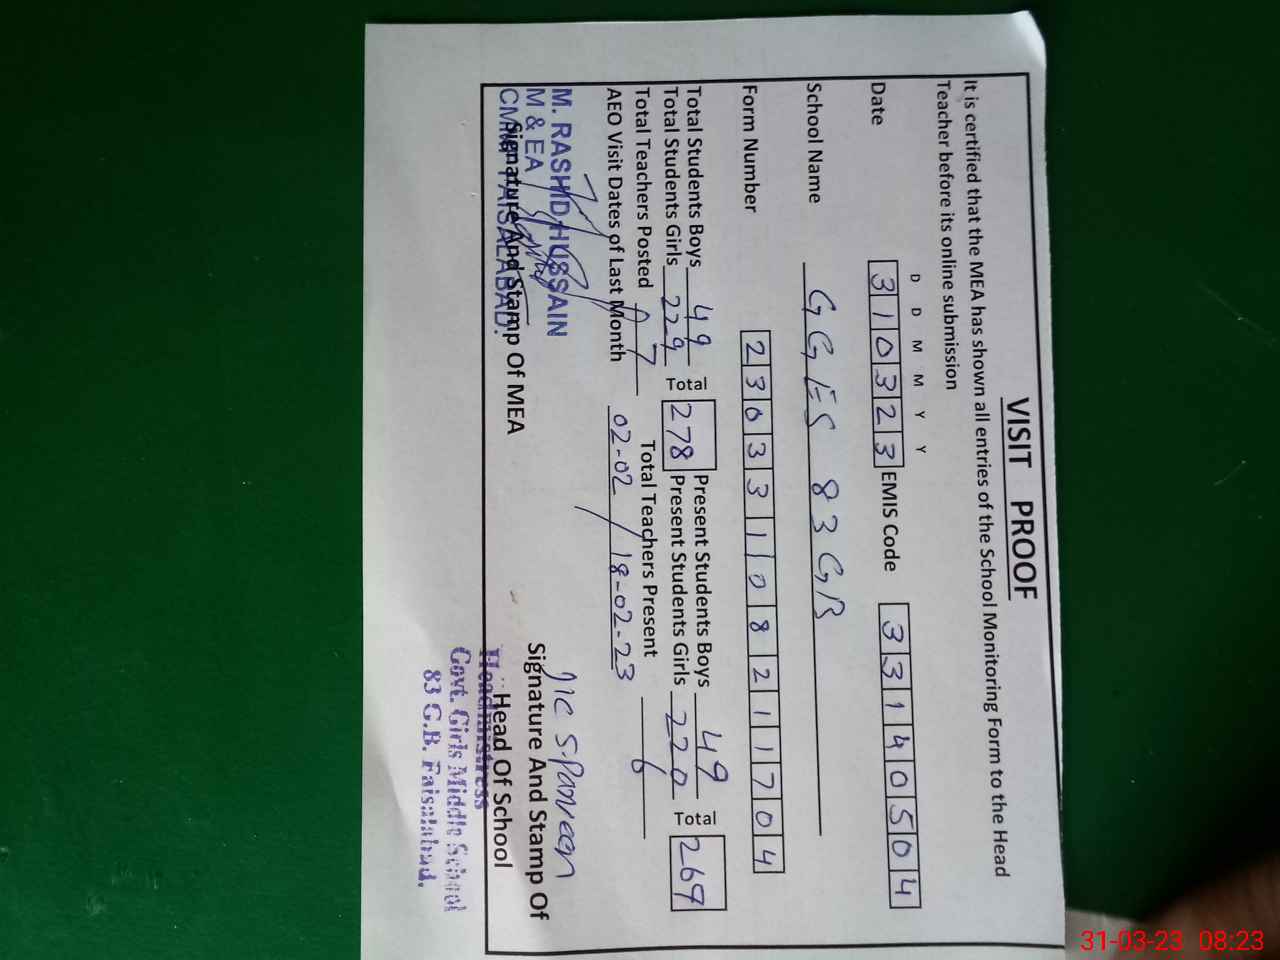 VISIT PROOF
It is certified that the MEA has shown all entries of the School Monitoring Form to the Head
Teacher before its online submission
D D M M Y Y
Date 310323 EMIS Code 33140504
School Name GGES 83GB
Form Number 23033108211704
Total Students Boys 49 Present Students Boys 49
Total Students Girls 229 Total 278 Present Students Girls 220 Total 269
Total Teachers Posted 07 Total Teachers Present 6
AEO Visit Dates of Last Month 02-02 / 18-02-23
M. RASHID HUSSAIN
M & EA
CMIT FAISALABAD.
Signature And Stamp Of MEA
I/C S.Parveen
Signature And Stamp Of
Head Of School
Headmistress
Govt. Girls Middle School
83 G.B. Faisalabad.
31-03-23 08:23